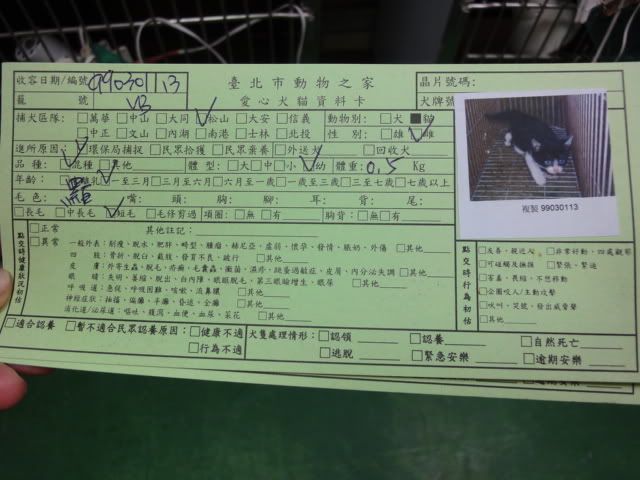 收容日期/編號 99030113 臺北市動物之家 晶片號碼:
籠 號 VB 愛心犬貓資料卡 犬牌號
捕犬區隊: □萬華 □中山 □大同 □松山 □大安 □信義 動物別: □犬 ■貓
□中正 □文山 □內湖 □南港 □士林 □北投 性 別: □雄 □雌
進所原因: □環保局捕捉 □民眾拾獲 □民眾棄養 □外送犬 □回收犬
品 種: □混種 □其他 體 型: □大 □中 □小 □幼 體重: 0.5 Kg
年齡: □離乳 □一至三月 □三月至六月 □六月至一歲 □一歲至三歲 □三至七歲 □七歲以上
毛 色: 黑 嘴: 頭: 胸: 腳: 耳: 背: 尾:
□長毛 □中長毛 □短毛 □毛修剪過 項圈: □無 □有 胸背: □無 □有
複製 99030113
點交時健康狀況初估
□正常 其他註記:
□異常
一般外表: 削瘦、脫水、肥胖、畸型、腫瘤、赫尼亞、虛弱、懷孕、發情、脹奶、外傷 □其他
四 肢: 骨折、脫臼、截肢、發育不良、跛行 □其他
皮 膚: 外寄生蟲、脫毛、疥癬、毛囊蟲、黴菌、濕疹、跳蚤過敏症、皮屑、內分泌失調 □其他
眼 睛: 失明、萎縮、脫出、白內障、眼瞼脫毛、第三眼瞼增生、眼屎 □其他
呼 吸 道: 急促、呼吸困難、咳嗽、流鼻膿 □其他
神經症狀: 抽搐、偏癱、半癱、昏迷、全癱 □其他
消化道/泌尿道: 嘔吐、腹瀉、血便、血尿、菜花 □其他
點交時行為初估
□友善、親近人 □非常好動、四處觀察
□可碰觸及撫摸 □緊張、緊迫
□害羞、畏縮、不想移動
□企圖咬人/主動攻擊
□吠叫、哭號、發出威脅聲
□其他
□適合認養 □暫不適合民眾認養原因: □健康不適 犬隻處理情形: □認領 □認養 □自然死亡
□行為不適 □逃脫 □緊急安樂 □逾期安樂